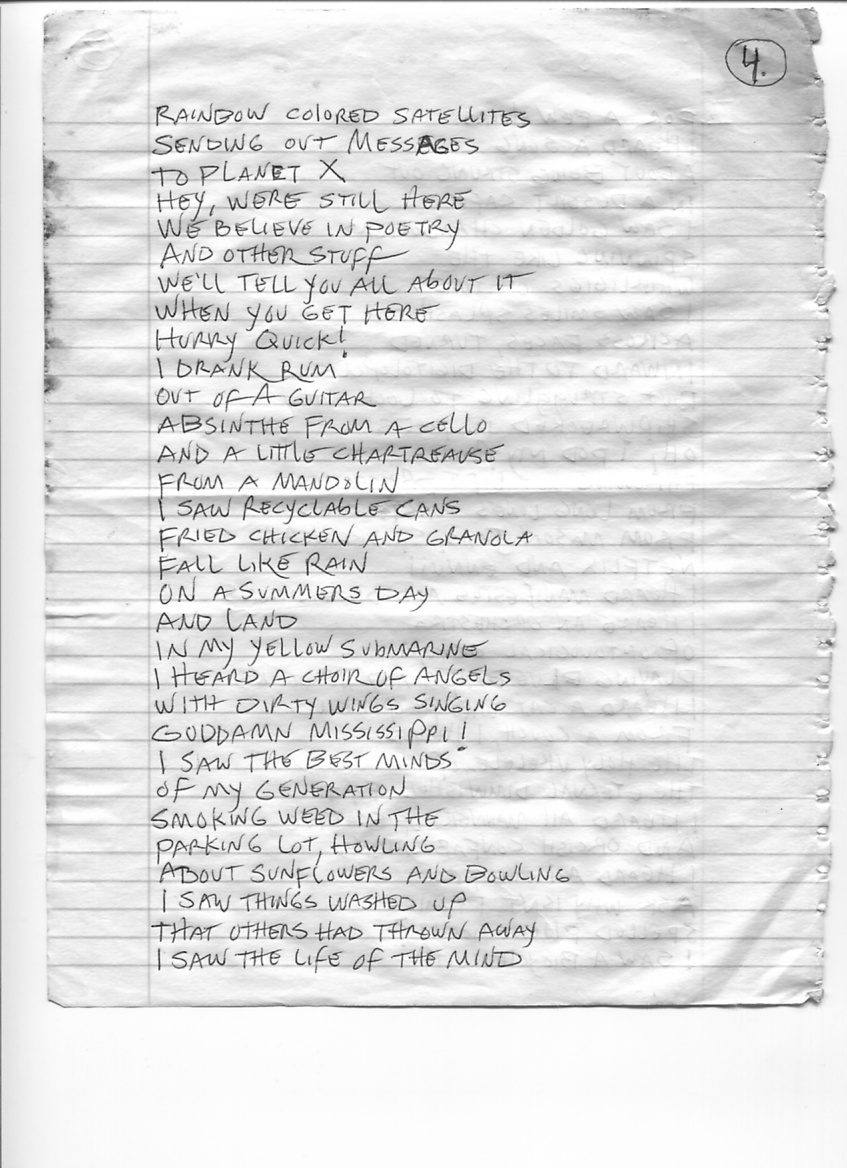 4.
RAINBOW COLORED SATELLITES
SENDING OUT MESSAGES
TO PLANET X
HEY, WERE STILL HERE
WE BELIEVE IN POETRY
AND OTHER STUFF
WE'LL TELL YOU ALL ABOUT IT
WHEN YOU GET HERE
HURRY QUICK!
I DRANK RUM
OUT OF A GUITAR
ABSINTHE FROM A CELLO
AND A LITTLE CHARTREAUSE
FROM A MANDOLIN
I SAW RECYCLABLE CANS
FRIED CHICKEN AND GRANOLA
FALL LIKE RAIN
ON A SUMMERS DAY
AND LAND
IN MY YELLOW SUBMARINE
I HEARD A CHOIR OF ANGELS
WITH DIRTY WINGS SINGING
GODDAMN MISSISSIPPI!
I SAW THE BEST MINDS
OF MY GENERATION
SMOKING WEED IN THE
PARKING LOT, HOWLING
ABOUT SUNFLOWERS AND BOWLING
I SAW THINGS WASHED UP
THAT OTHERS HAD THROWN AWAY
I SAW THE LIFE OF THE MIND